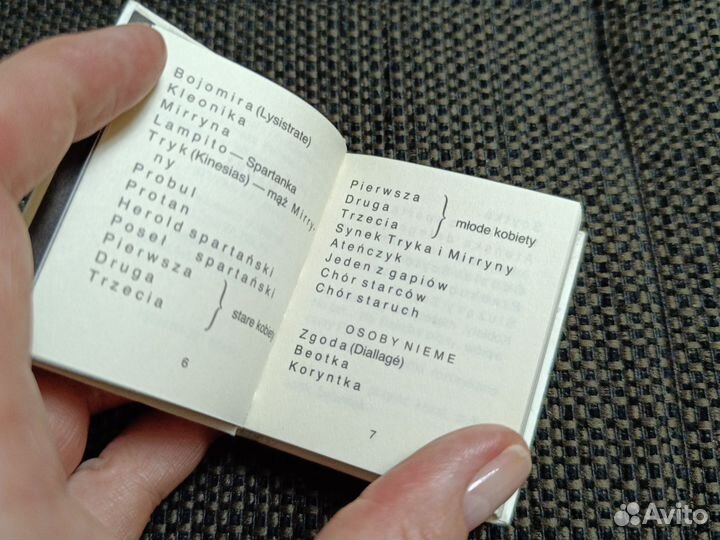 Bojomira (Lysistrate)
Kleonika
Mirryna
Lampito — Spartanka
Tryk (Kinesias) — mąż Mirry-
ny
Probul
Protan
Herold spartański
Poseł spartański
Pierwsza
Druga
Trzecia
stare kobiety
6
Pierwsza
Druga
Trzecia
młode kobiety
Synek Tryka i Mirryny
Ateńczyk
Jeden z gapiów
Chór starców
Chór staruch
OSOBY NIEME
Zgoda (Diallagé)
Beotka
Koryntka
7
Avito